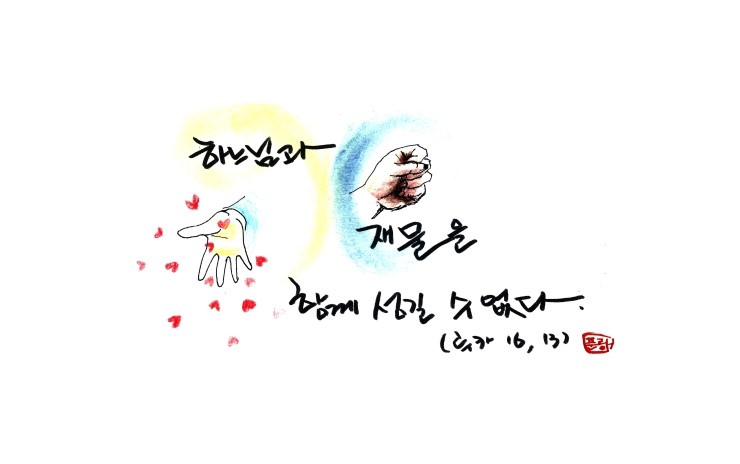 하느님과
재물을
함께 섬길 수 없다.
(루카 16, 13)